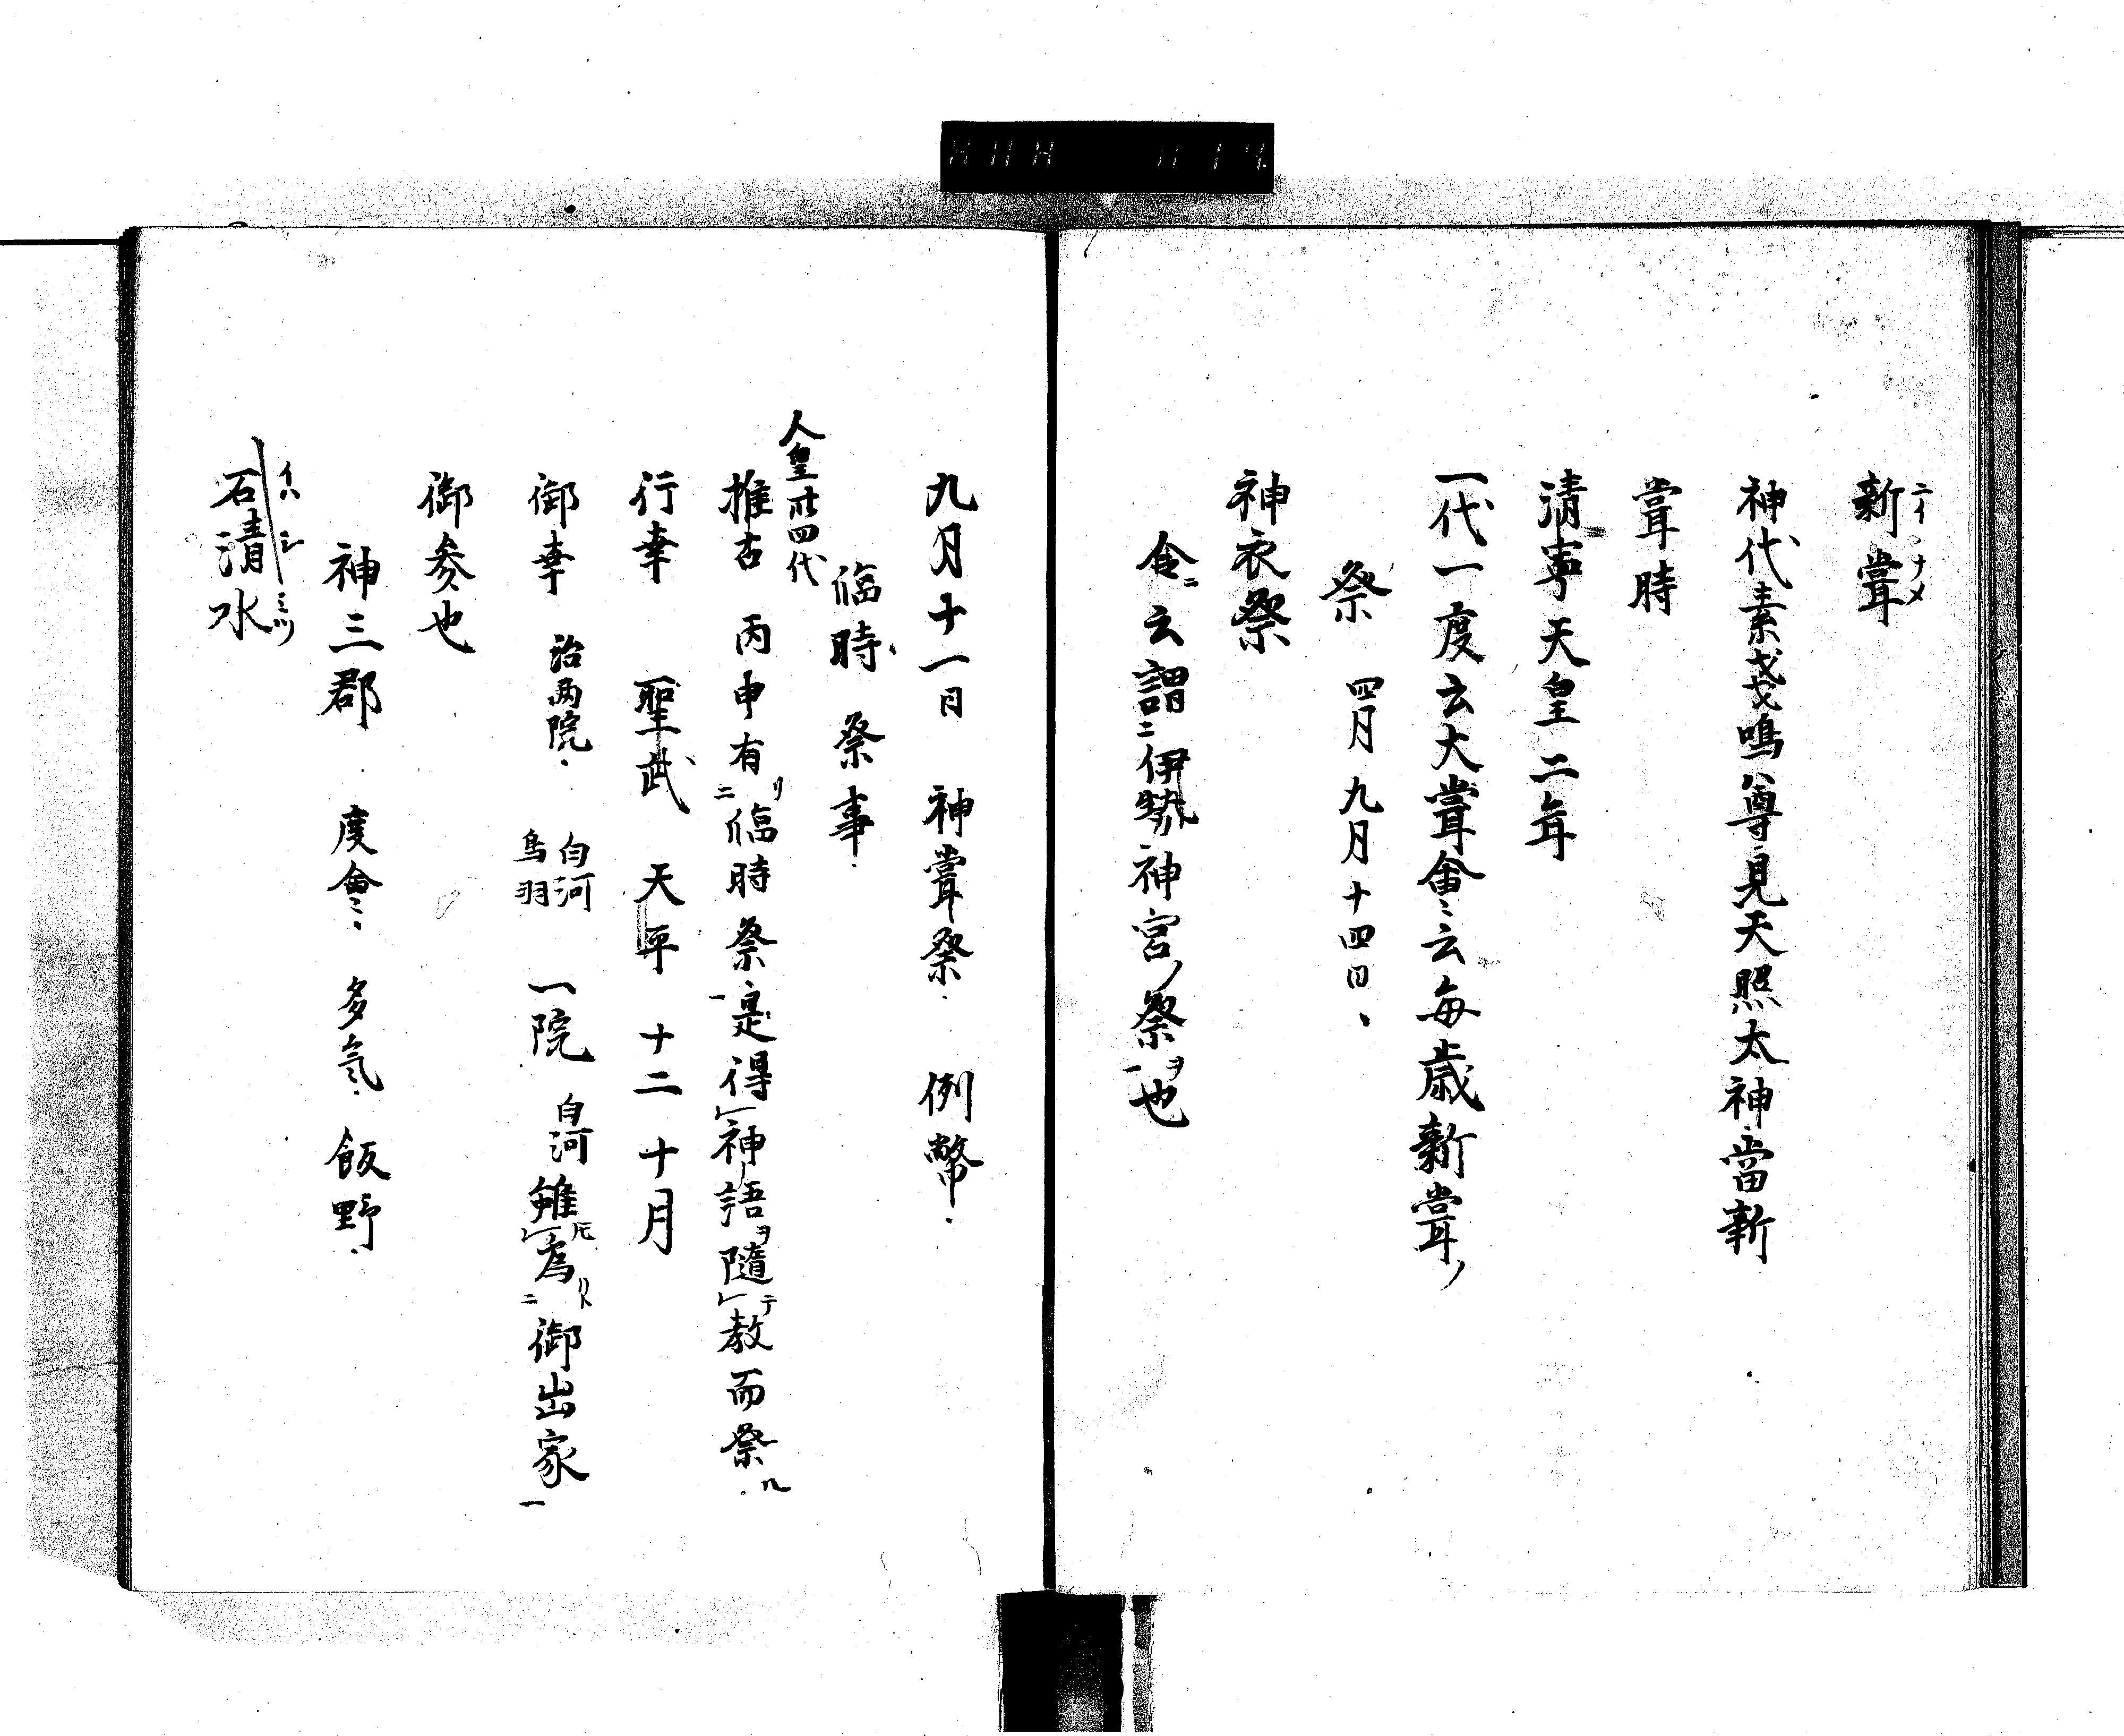 新嘗
ニイナメ
神代素戔嗚尊見天照太神當新
嘗時
清寧天皇二年
一代一度云大嘗會云每歲新嘗
祭 四月九月十四日
神衣祭
令ニ云謂二伊勢神宮ノ祭ヲ一也
九月十一日 神嘗祭 例幣
臨時祭事
人皇卅四代
推古 丙申有リ二臨時祭一是得レ神語ヲ隨テレ教而祭ル
行幸 聖武 天平十二十月
御幸 治兩院 白河
鳥羽 一院 白河 雖レ為二御出家一
御參也
神三郡 度會 多氣 飯野
石清水
イハシミツ